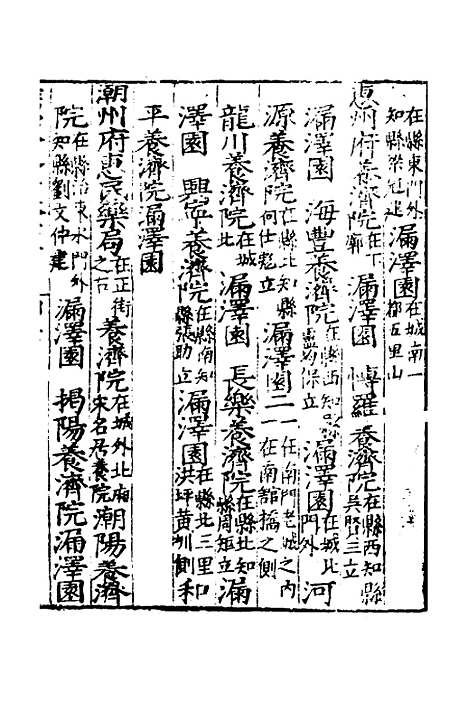 在縣東門外知縣梁冠建漏澤園在城南一都五里山
惠州府養濟院在下廓漏澤園 博羅養濟院在縣西知縣吳賢三立
漏澤園 海豐養濟院在縣西知縣盧為保立漏澤園在城北門外河
源養濟院在縣北知縣何仕㧑立漏澤園二一在南門老城之內一在南館橋之側
龍川養濟院在城北漏澤園 長樂養濟院在縣北知縣周矩立漏
澤園 興寧養濟院在縣南知縣張助立漏澤園在縣北三里洪坪黄圳側和
平養濟院漏澤園
潮州府惠民藥局在正街之右養濟院在城外北廂宋名居養院潮陽養濟
院在縣治東水門外知縣劉文仲建漏澤園 揭陽養濟院漏澤園